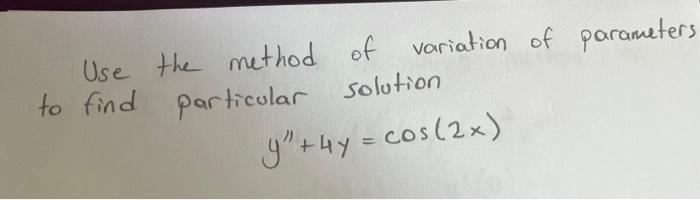 Use the method of variation of parameters
to find particular solution
y" + 4y = cos(2x)